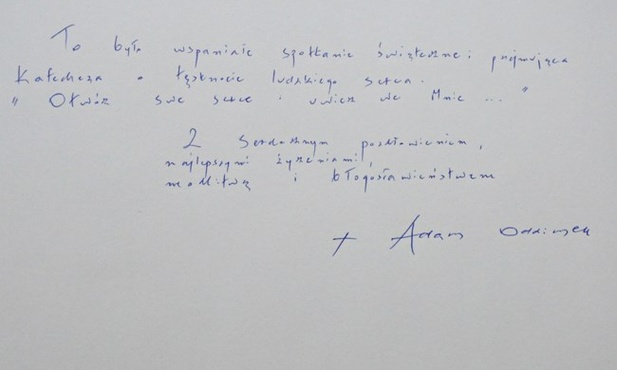 To było wspaniałe spotkanie świąteczne i przejmująca
Katecheza o tęsknocie ludzkiego serca.
" Otwórz swe serce i uwierz we Mnie ... "
Z serdecznym pozdrowieniem,
najlepszymi życzeniami,
modlitwą i błogosławieństwem
+ Adam Odzimek